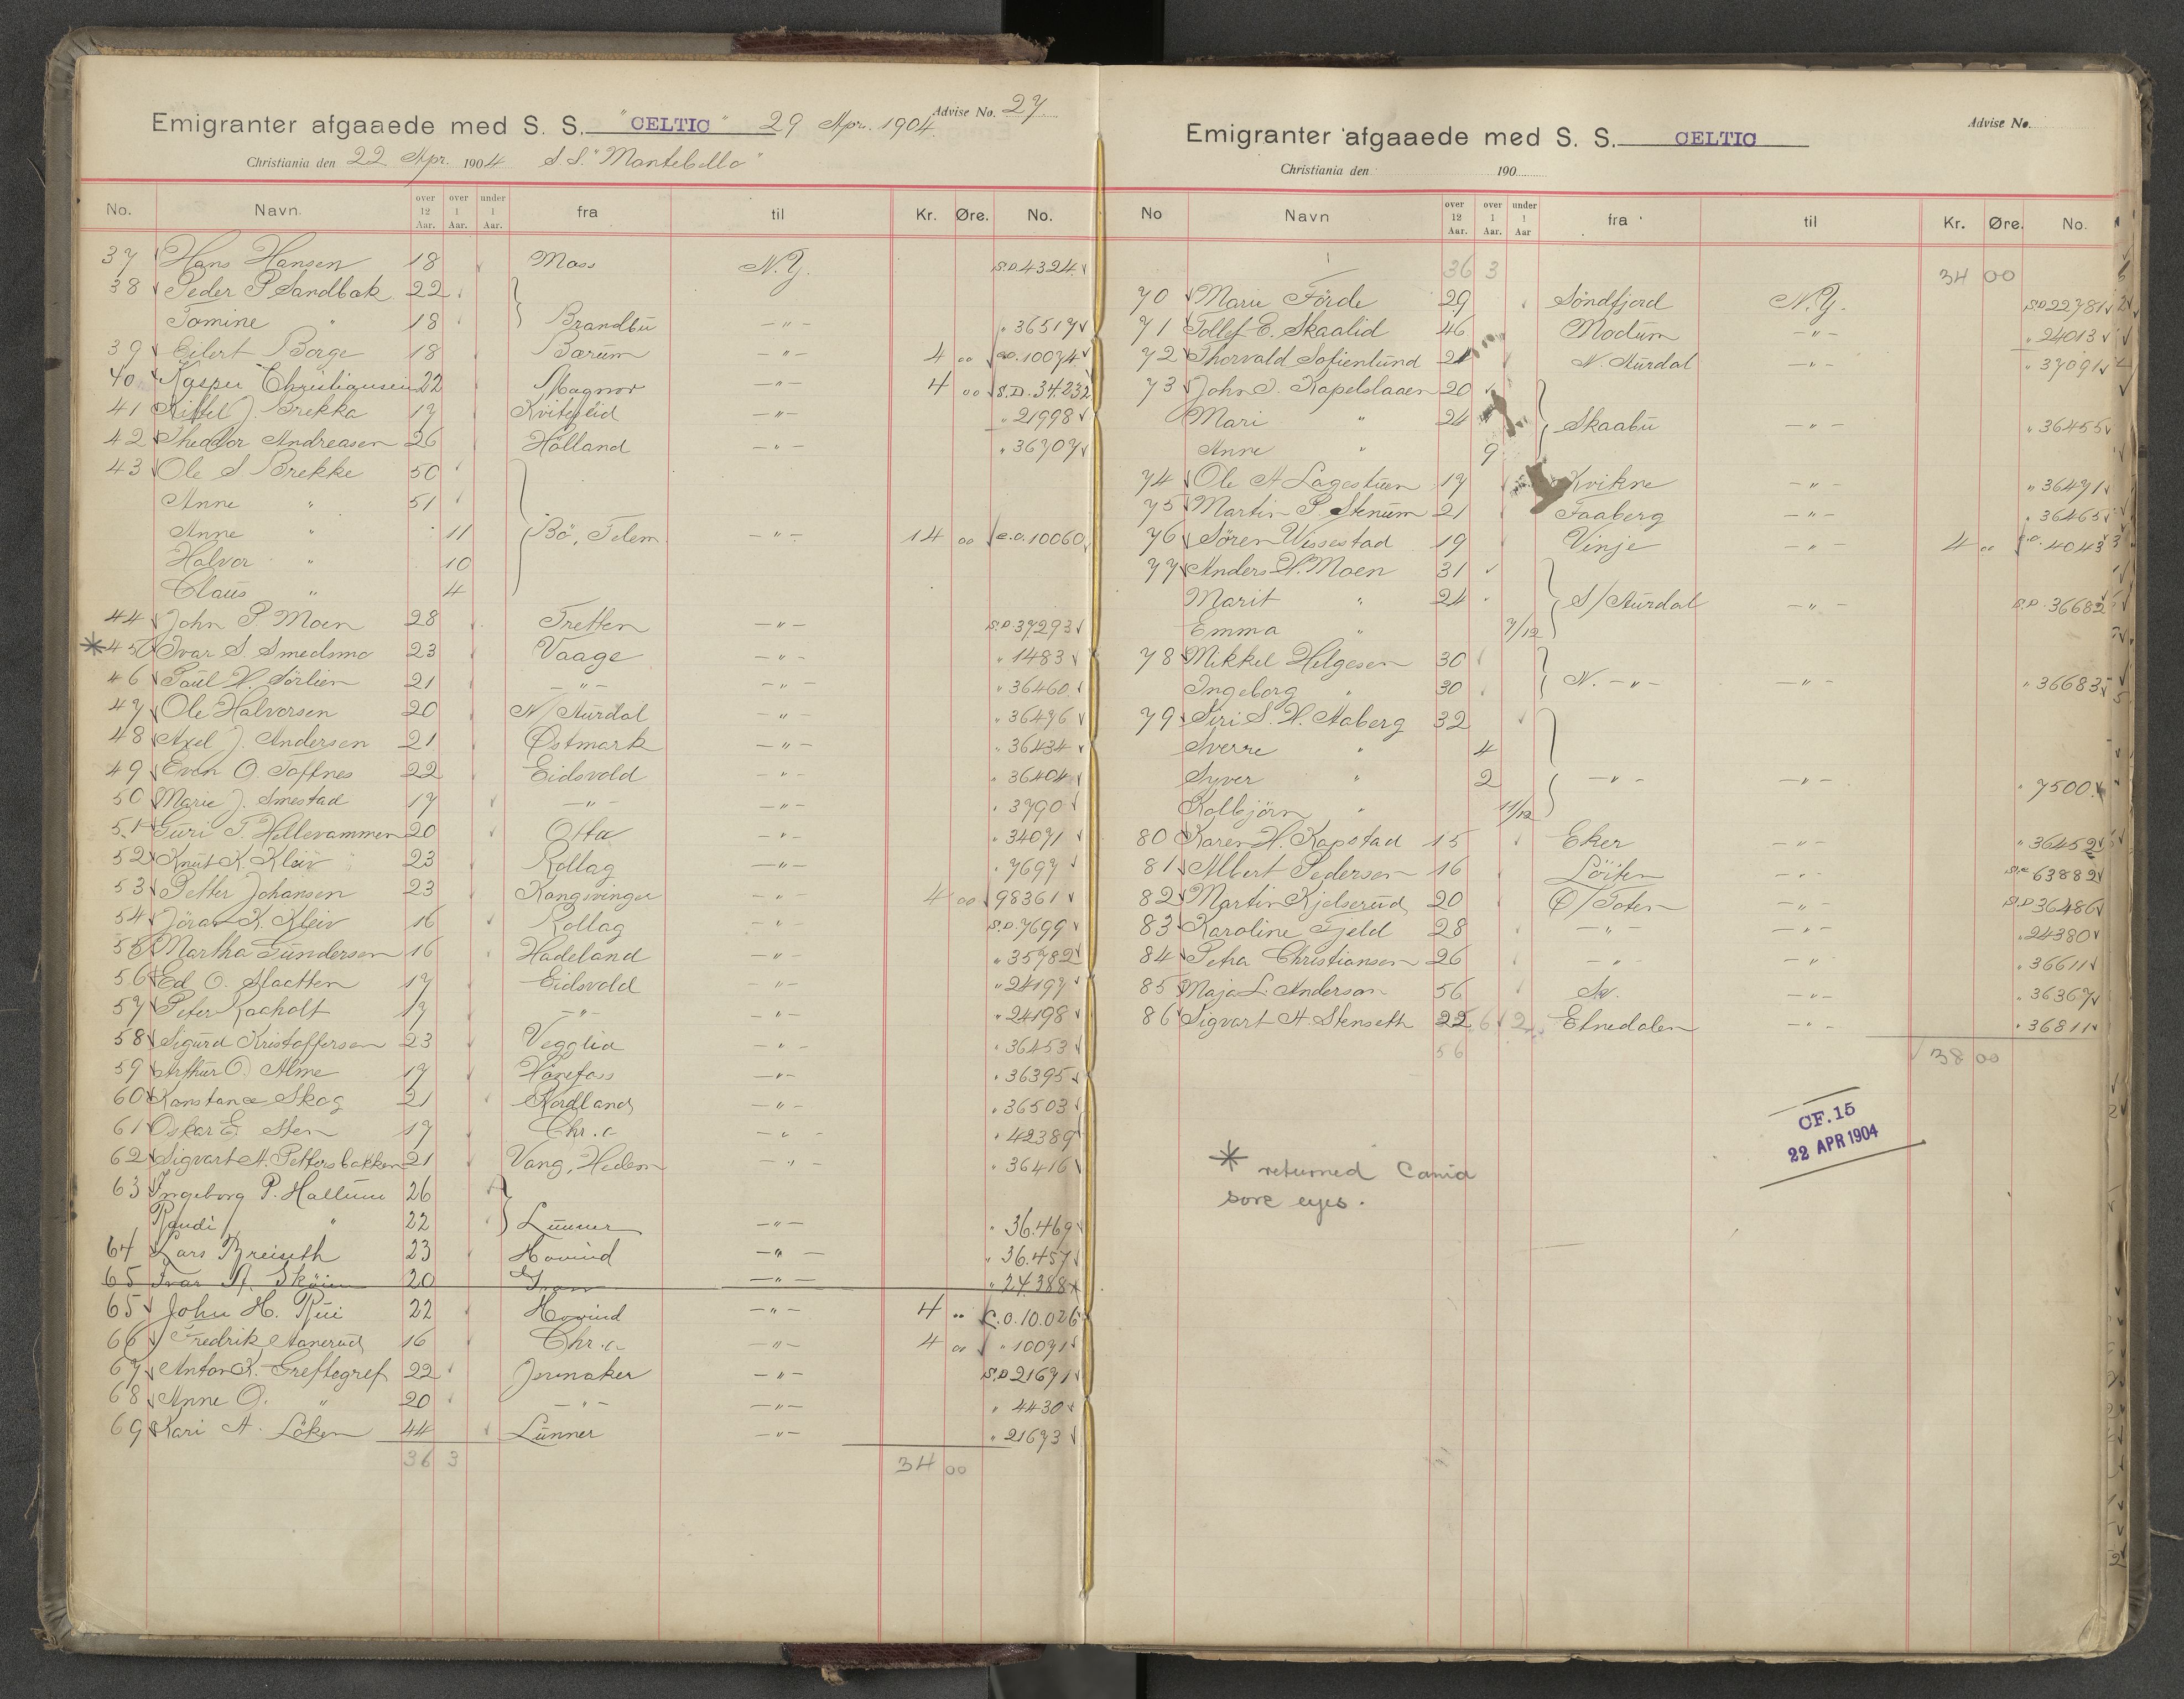 Emigranter afgaaede med S. S. "CELTIC" 29 Apr. 1904 Advise No. 27
Christiania den 22 Apr. 1904 S.S. "Montebello"
No. Navn. over 12 Aar. over 1 Aar. under 1 Aar. fra til Kr. Øre. No.
37 Hans Hansen 18 Moss N.Y. S.D. 4324
38 Peder P Sandbak 22
Tomine " 18 Brandbu — " — " 36517
39 Eilert Borge 18 Bærum — " — 4 00 10074
40 Kasper Christiansen 22 Magnor — " — 4 00 S.D. 34232
41 Kittel J. Brekka 17 Kviteseid — " — " 21998
42 Theodor Andreasen 26 Hölland — " — " 36707
43 Ole S. Brekke 50
Anne " 51
Anne " 11 Bö, Telem. — " — 14 00 c.o. 10060
Halvor " 10
Claus " 4
44 John P Moen 28 Tretten — " — S.D 37293
* 45 Ivar S. Smedsmo 23 Vaage — " — " 1483
46 Paul H. Sörlien 21 — " — — " — " 36460
47 Ole Halvorsen 20 N/Aurdal — " — " 36496
48 Axel J. Andersen 21 Østmark — " — " 36434
49 Even O. Toftnes 22 Eidsvold — " — " 36404
50 Marie J. Smestad 17 — " — — " — " 3790
51 Guri T. Hellevammen 20 Otta — " — " 34071
52 Knut K. Kleiv 23 Rollag — " — " 7697
53 Petter Johansen 23 Kongsvinger — " — 4 00 98361
54 Jöran K. Kleiv 16 Rollag — " — S.D. 7699
55 Martha Gundersen 16 Hadeland — " — " 35782
56 Ed O. Slaatten 17 Eidsvold — " — " 24197
57 Peter Raaholt 17 — " — — " — " 24198
58 Sigurd Kristoffersen 23 Vegglid — " — " 36453
59 Arthur O. Alme 17 Hönefoss — " — " 36395
60 Konstance Skog 21 Nordland — " — " 36503
61 Oskar E. Sten 17 Chr.a — " — " 42389
62 Sigvart A. Pettersbakken 21 Vang, Hedem — " — " 36416
63 Ingeborg P. Hallum 26
Randi " 22 Lunner — " — " 36.469
64 Lars Breiseth 23 Hovind — " — " 36.457
65 Ivar A. Sköien 20 Gran — " — " 24388
65 John H. Rui 22 Hovind — " — 4 " C.O. 10.026
66 Fredrik Aanerud 16 Chr.a — " — 4 00 " 10071
67 Anton K. Greftegref 22 Jevnaker — " — S.D 21671
68 Anne O. " 20 — " — — " — " 4430
69 Kari A. Löken 44 Lunner — " — " 21673
36 3 34 00
Emigranter afgaaede med S. S. CELTIC Advise No.
Christiania den 190
No Navn over 12 Aar. over 1 Aar. under 1 Aar fra til Kr. Øre. No.
36 3 34 00
70 Marie Förde 29 Söndfjord N.Y. S.D 22781
71 Tollef E. Skaalid 46 Modum — " — " 24013
72 Thorvald Sofienlund 21 N. Aurdal — " — " 37091
73 John J. Kapelslaaen 20
Mari " 24 Skaabu — " — " 36455
Anne " 9
74 Ole A Lagestuen 17 Kvikne — " — " 36471
75 Martin P. Stenum 21 Faaberg — " — " 36465
76 Sören Wissestad 19 Vinje — " — 4 00 4043
77 Anders H. Moen 31
Marit " 24 S/Aurdal — " — S.D. 36682
Emma " 7/12
78 Mikkel Helgesen 30
Ingeborg " 30 N. — " — — " — " 36683
79 Siri S. H. Aaberg 32
Sverre " 4
Syver " 2 — " — — " — " 7500
Kolbjörn " 11/12
80 Karen H. Kapstad 15 Eker — " — " 36452
81 Albert Pedersen 16 Löiten — " — 63882
82 Martin Kjelserud 20 Ø/Toten — " — S.D 36486
83 Karoline Fjeld 28 — " — — " — " 24380
84 Petra Christiansen 26 — " — — " — " 36611
85 Maja L. Anderson 56 Sv. — " — " 36367
86 Sigvart A. Stenseth 22 Etnedalen — " — " 36811
56 6 2 38 00
CF. 15
22 APR 1904
* returned Cania
sore eyes.